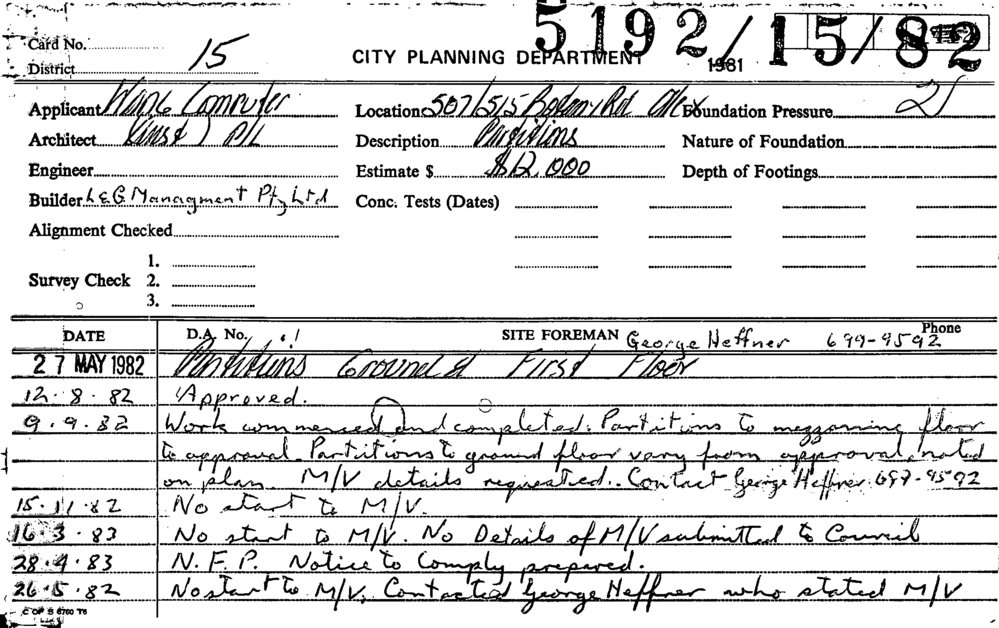 5192/15/82
Card No.
District 15
CITY PLANNING DEPARTMENT 1981
Applicant Wang Computer Location 507/515 Botany Rd Alex Foundation Pressure 21
Architect P/L Description Partitions Nature of Foundation
Engineer Estimate $ $12,000 Depth of Footings
Builder L & G Managment Pty Ltd Conc. Tests (Dates)
Alignment Checked
1.
Survey Check 2.
3.
DATE D.A. No. SITE FOREMAN George Heffner Phone 699-9592
27 MAY 1982 Partitions Ground & First Floor
12·8·82 Approved.
9·9·82 Work commenced and completed. Partitions to mezzanine floor
to approval. Partitions to ground floor vary from approval, noted
on plan. M/V details requested. Contact George Heffner 699-9592
15·11·82 No start to M/V.
16·3·83 No start to M/V. No Details of M/V submitted to Council
28·4·83 N.F.P. Notice to Comply prepared.
26·5·82 No start to M/V. Contacted George Heffner who stated M/V